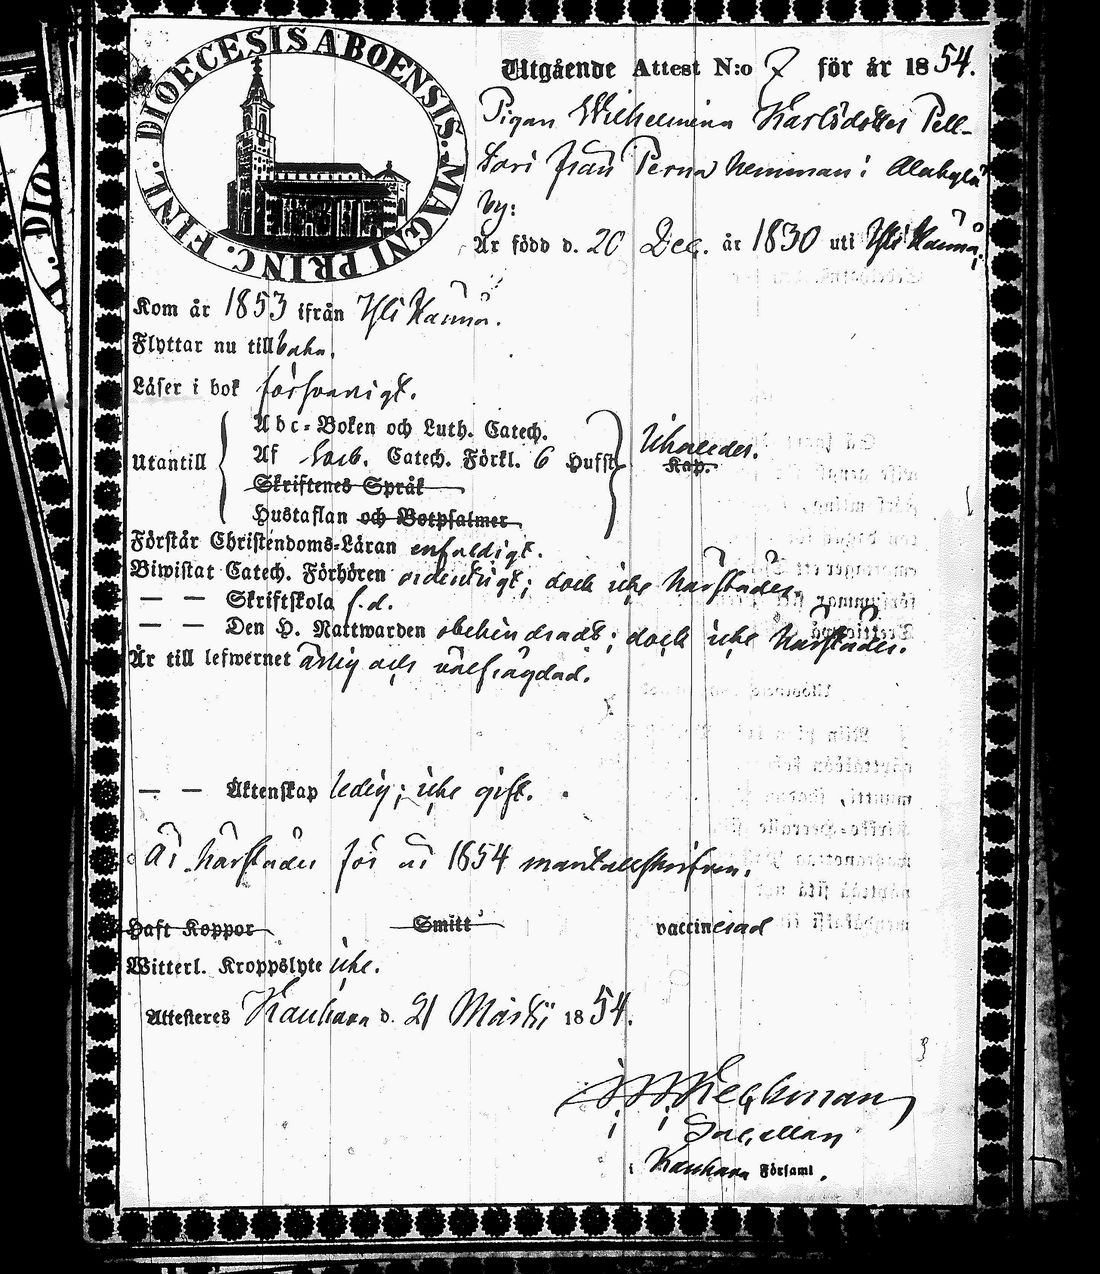 DIOECESIS ABOENSIS. MAGNI PRINC. FINL.
Utgående Attest N:o 7 för år 1854.
Pigan Wilhelmina Karlsdotter Pell-
från Perna hemman i Alakylä
by:
Är född d. 20 Dec. år 1830 uti Yli Kannu;
Kom år 1853 ifrån Yli Kannu.
Flyttar nu tillbaka.
Läser i bok försvarligt.
Utantill
Abc-Boken och Luth. Catech.
Af Catech. Förkl. 6 Hufst Kap.
Skriftenes Språk
Hustaflan och Botpsalmer
Förstår Christendoms-Läran enfaldigt.
Biwistat Catech. Förhören ordentligt; dock icke härstädes.
— — Skriftskola f.d.
— — Den H. Nattwarden obehindradt; dock icke härstädes.
Är till lefwernet ärlig och välfrägdad.
— — Äktenskap ledig; icke gift.
Är härstädes för år 1854 mantalsskrifven.
Haft Koppor Smitt vaccinerad
Witterl. Kroppslyte icke.
Attesteres Kauhava d. 21 Martii 1854.
Sacellan
i Kauhava Församl.